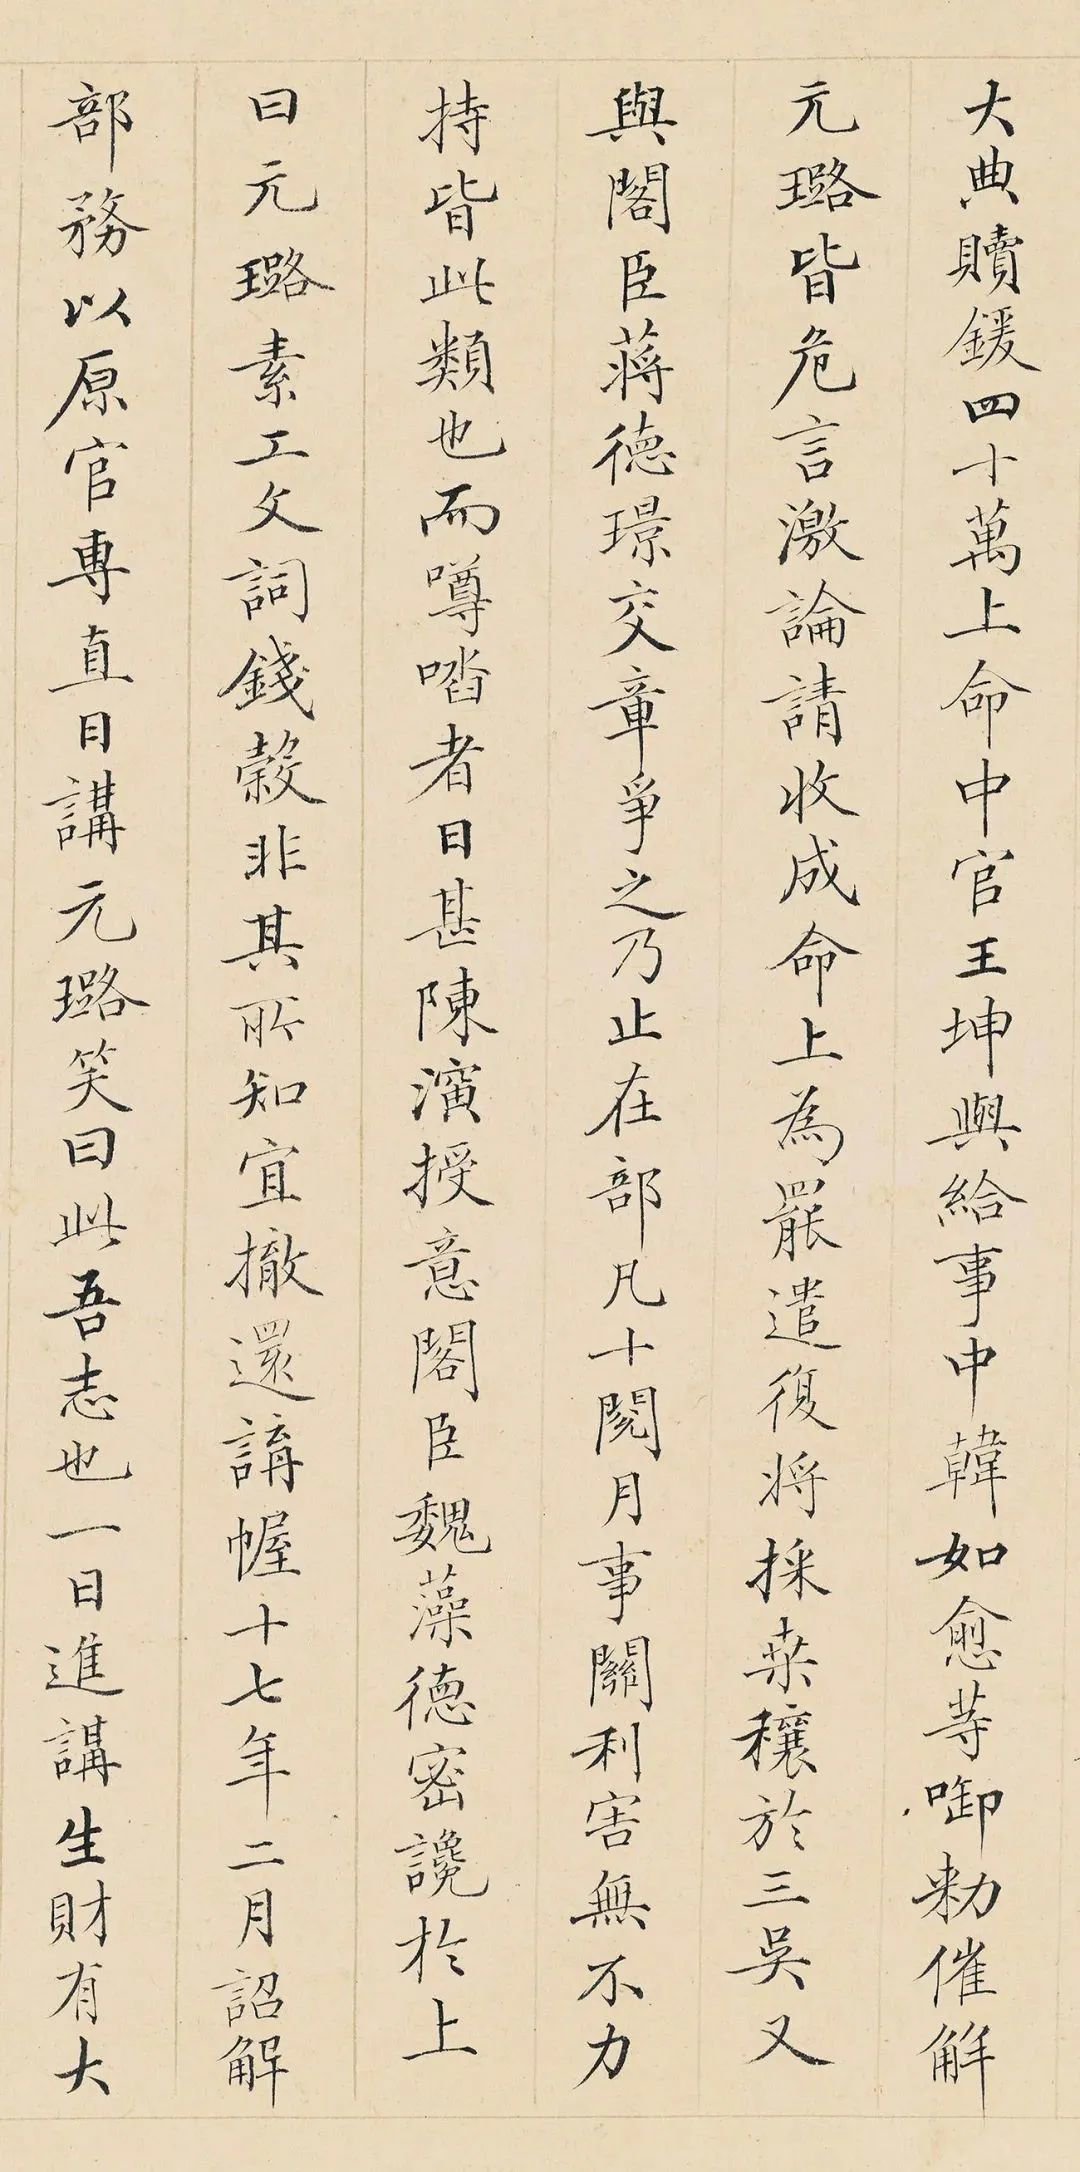 大典贖鍰四十萬上命中官王坤與給事中韓如愈等啣勑催解
元璐皆危言激論請收成命上為罷遣復將採桒穰於三吳又
與閣臣蔣德璟交章爭之乃止在部凡十閱月事關利害無不力
持皆此類也而噂喈者日甚陳演授意閣臣魏藻德密讒於上
曰元璐素工文詞錢穀非其所知宜撤還講幄十七年二月詔解
部務以原官專直日講元璐笑曰此吾志也一日進講生財有大